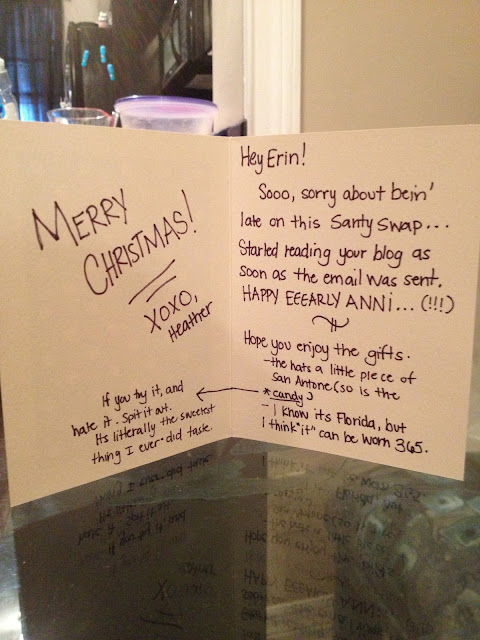 MERRY
CHRISTMAS!
XOXO,
Heather
If you try it, and
hate it. Spit it out.
Its litterally the sweetest
thing I ever did taste.
Hey Erin!
Sooo, sorry about bein'
late on this Santy Swap...
Started reading your blog as
soon as the email was sent.
HAPPY EEEARLY ANNI... (!!!)
Hope you enjoy the gifts.
- the hats a little piece of
San Antone (so is the
* candy)
- I know its Florida, but
i think "it" can be worn 365.